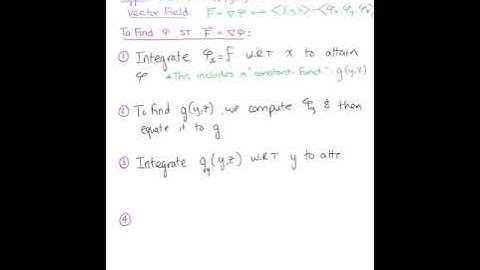 Vector Field: F⃗ = ∇φ ⟷ <f,g,h> = <φx, φy, φz>
To Find φ ST F⃗ = ∇φ:
① Integrate φx = f W.R.T x to attain
φ *This includes a "constant Funct." g(y,z)
② To find g(y,z), we compute φy & then
equate it to g
③ Integrate gy(y,z) W.R.T y to atte
④